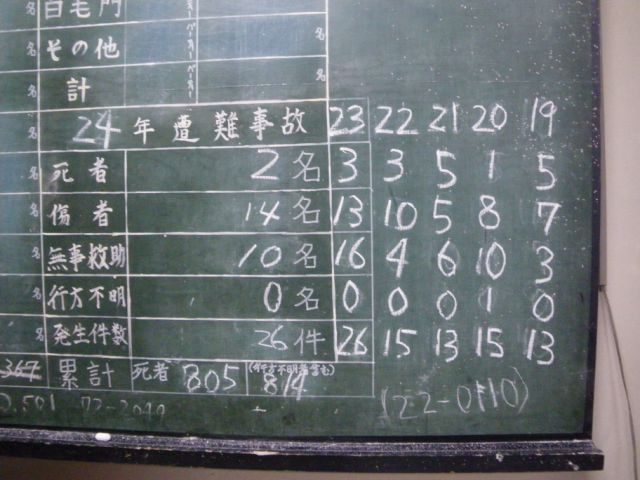 白毛門
その他 名
名 計
名 24年遭難事故 23 22 21 20 19
名 死者 2名 3 3 5 1 5
名 傷者 14名 13 10 5 8 7
名 無事救助 10名 16 4 6 10 3
名 行方不明 0名 0 0 0 1 0
名 発生件数 26件 26 15 13 15 13
累計 死者 805 (行方不明者含む) 814